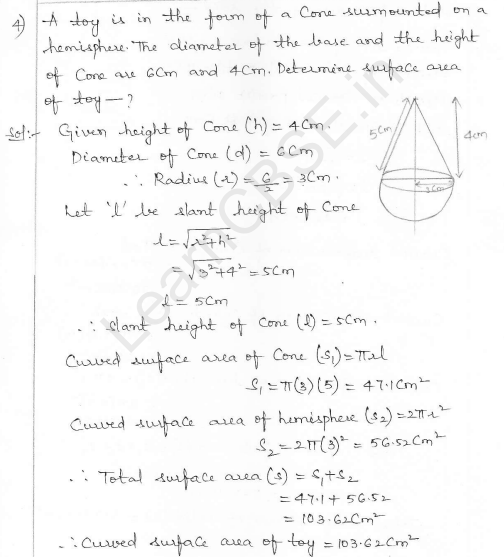 4) A toy is in the form of a Cone surmounted on a
hemisphere. The diameter of the base and the height
of Cone are 6Cm and 4Cm. Determine surface area
of toy—?
Sol:- Given height of Cone (h) = 4Cm.
Diameter of Cone (d) = 6Cm
∴ Radius (r) = 6/2 = 3Cm.
Let 'l' be slant height of Cone
l = √r²+h²
= √3²+4² = 5Cm
l = 5Cm
∴ Slant height of Cone (l) = 5Cm.
Curved surface area of Cone (S₁) = πrl
S₁ = π(3)(5) = 47.1Cm²
Curved surface area of hemisphere (S₂) = 2πr²
S₂ = 2π(3)² = 56.52Cm²
∴ Total surface area (S) = S₁+S₂
= 47.1 + 56.52
= 103.62Cm²
∴ Curved surface area of toy = 103.62Cm²
5Cm
4Cm
3Cm
LearnCBSE.in